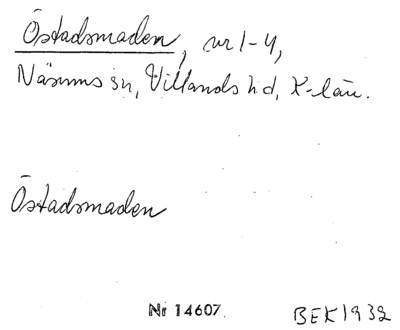 Östadsmaden, nr 1-4,
Näsums sn, Villands hd, X-län.
Östadsmaden
Nr 14607
BEK 1932